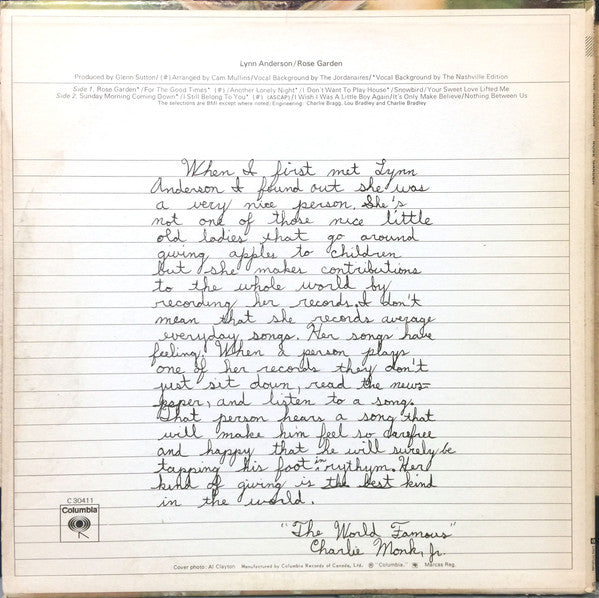 Lynn Anderson/Rose Garden
Produced by Glenn Sutton/(#) Arranged by Cam Mullins/Vocal Background by The Jordanaires/*Vocal Background by The Nashville Edition
Side 1. Rose Garden*/For The Good Times*/(#)/Another Lonely Night*/I Don't Want To Play House*/Snowbird/Your Sweet Love Lifted Me
Side 2. Sunday Morning Coming Down*/I Still Belong To You* (#) (ASCAP)/I Wish I Was A Little Boy Again/It's Only Make Believe/Nothing Between Us
The selections are BMI except where noted/Engineering: Charlie Bragg, Lou Bradley and Charlie Bradley
When I first met Lynn
Anderson I found out she was
a very nice person. She's
not one of those nice little
old ladies that go around
giving apples to children
but she makes contributions
to the whole world by
recording her records. I don't
mean that she records average
everyday songs. Her songs have
feeling. When a person plays
one of her records they don't
just sit down, read the news-
paper, and listen to a song.
That person hears a song that
will make him feel so carefree
and happy that he will surely be
tapping his foot in rythym. Her
kind of giving is the best kind
in the world.
"The World Famous"
Charlie Monk, Jr.
C 30411
Columbia
Cover photo: Al Clayton Manufactured by Columbia Records of Canada, Ltd. ® "Columbia," Marcas Reg.